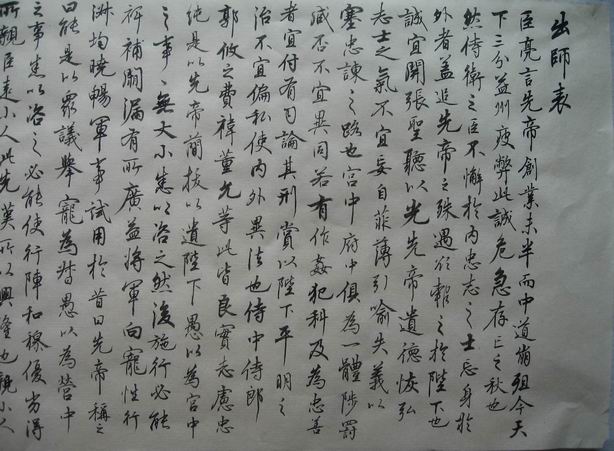 出師表
臣亮言先帝創業未半而中道崩殂今天
下三分益州疲弊此誠危急存亡之秋也
然侍衛之臣不懈於內忠志之士忘身於
外者蓋追先帝之殊遇欲報之於陛下也
誠宜開張聖聽以光先帝遺德恢弘
志士之氣不宜妄自菲薄引喻失義以
塞忠諫之路也宮中府中俱為一體陟罰
臧否不宜異同若有作姦犯科及為忠善
者宜付有司論其刑賞以陛下平明之
治不宜偏私使內外異法也侍中侍郎
郭攸之費禕董允等此皆良實志慮忠
純是以先帝簡拔以遺陛下愚以為宮中
之事、無大小悉以咨之然後施行必能
裨補闕漏有所廣益將軍向寵性行
淑均曉暢軍事試用於昔日先帝稱之
曰能是以眾議舉寵為督愚以為營中
之事悉以咨之必能使行陣和穆優劣得
所親臣遠小人此先漢所以興隆也親小人